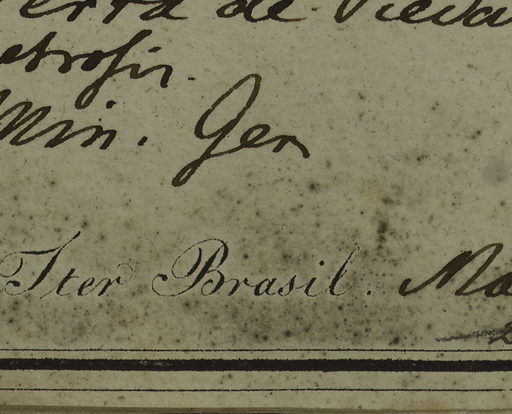 erra de Pieda
etrosir.
Min. Gen
Iter Brasil. Ma
2